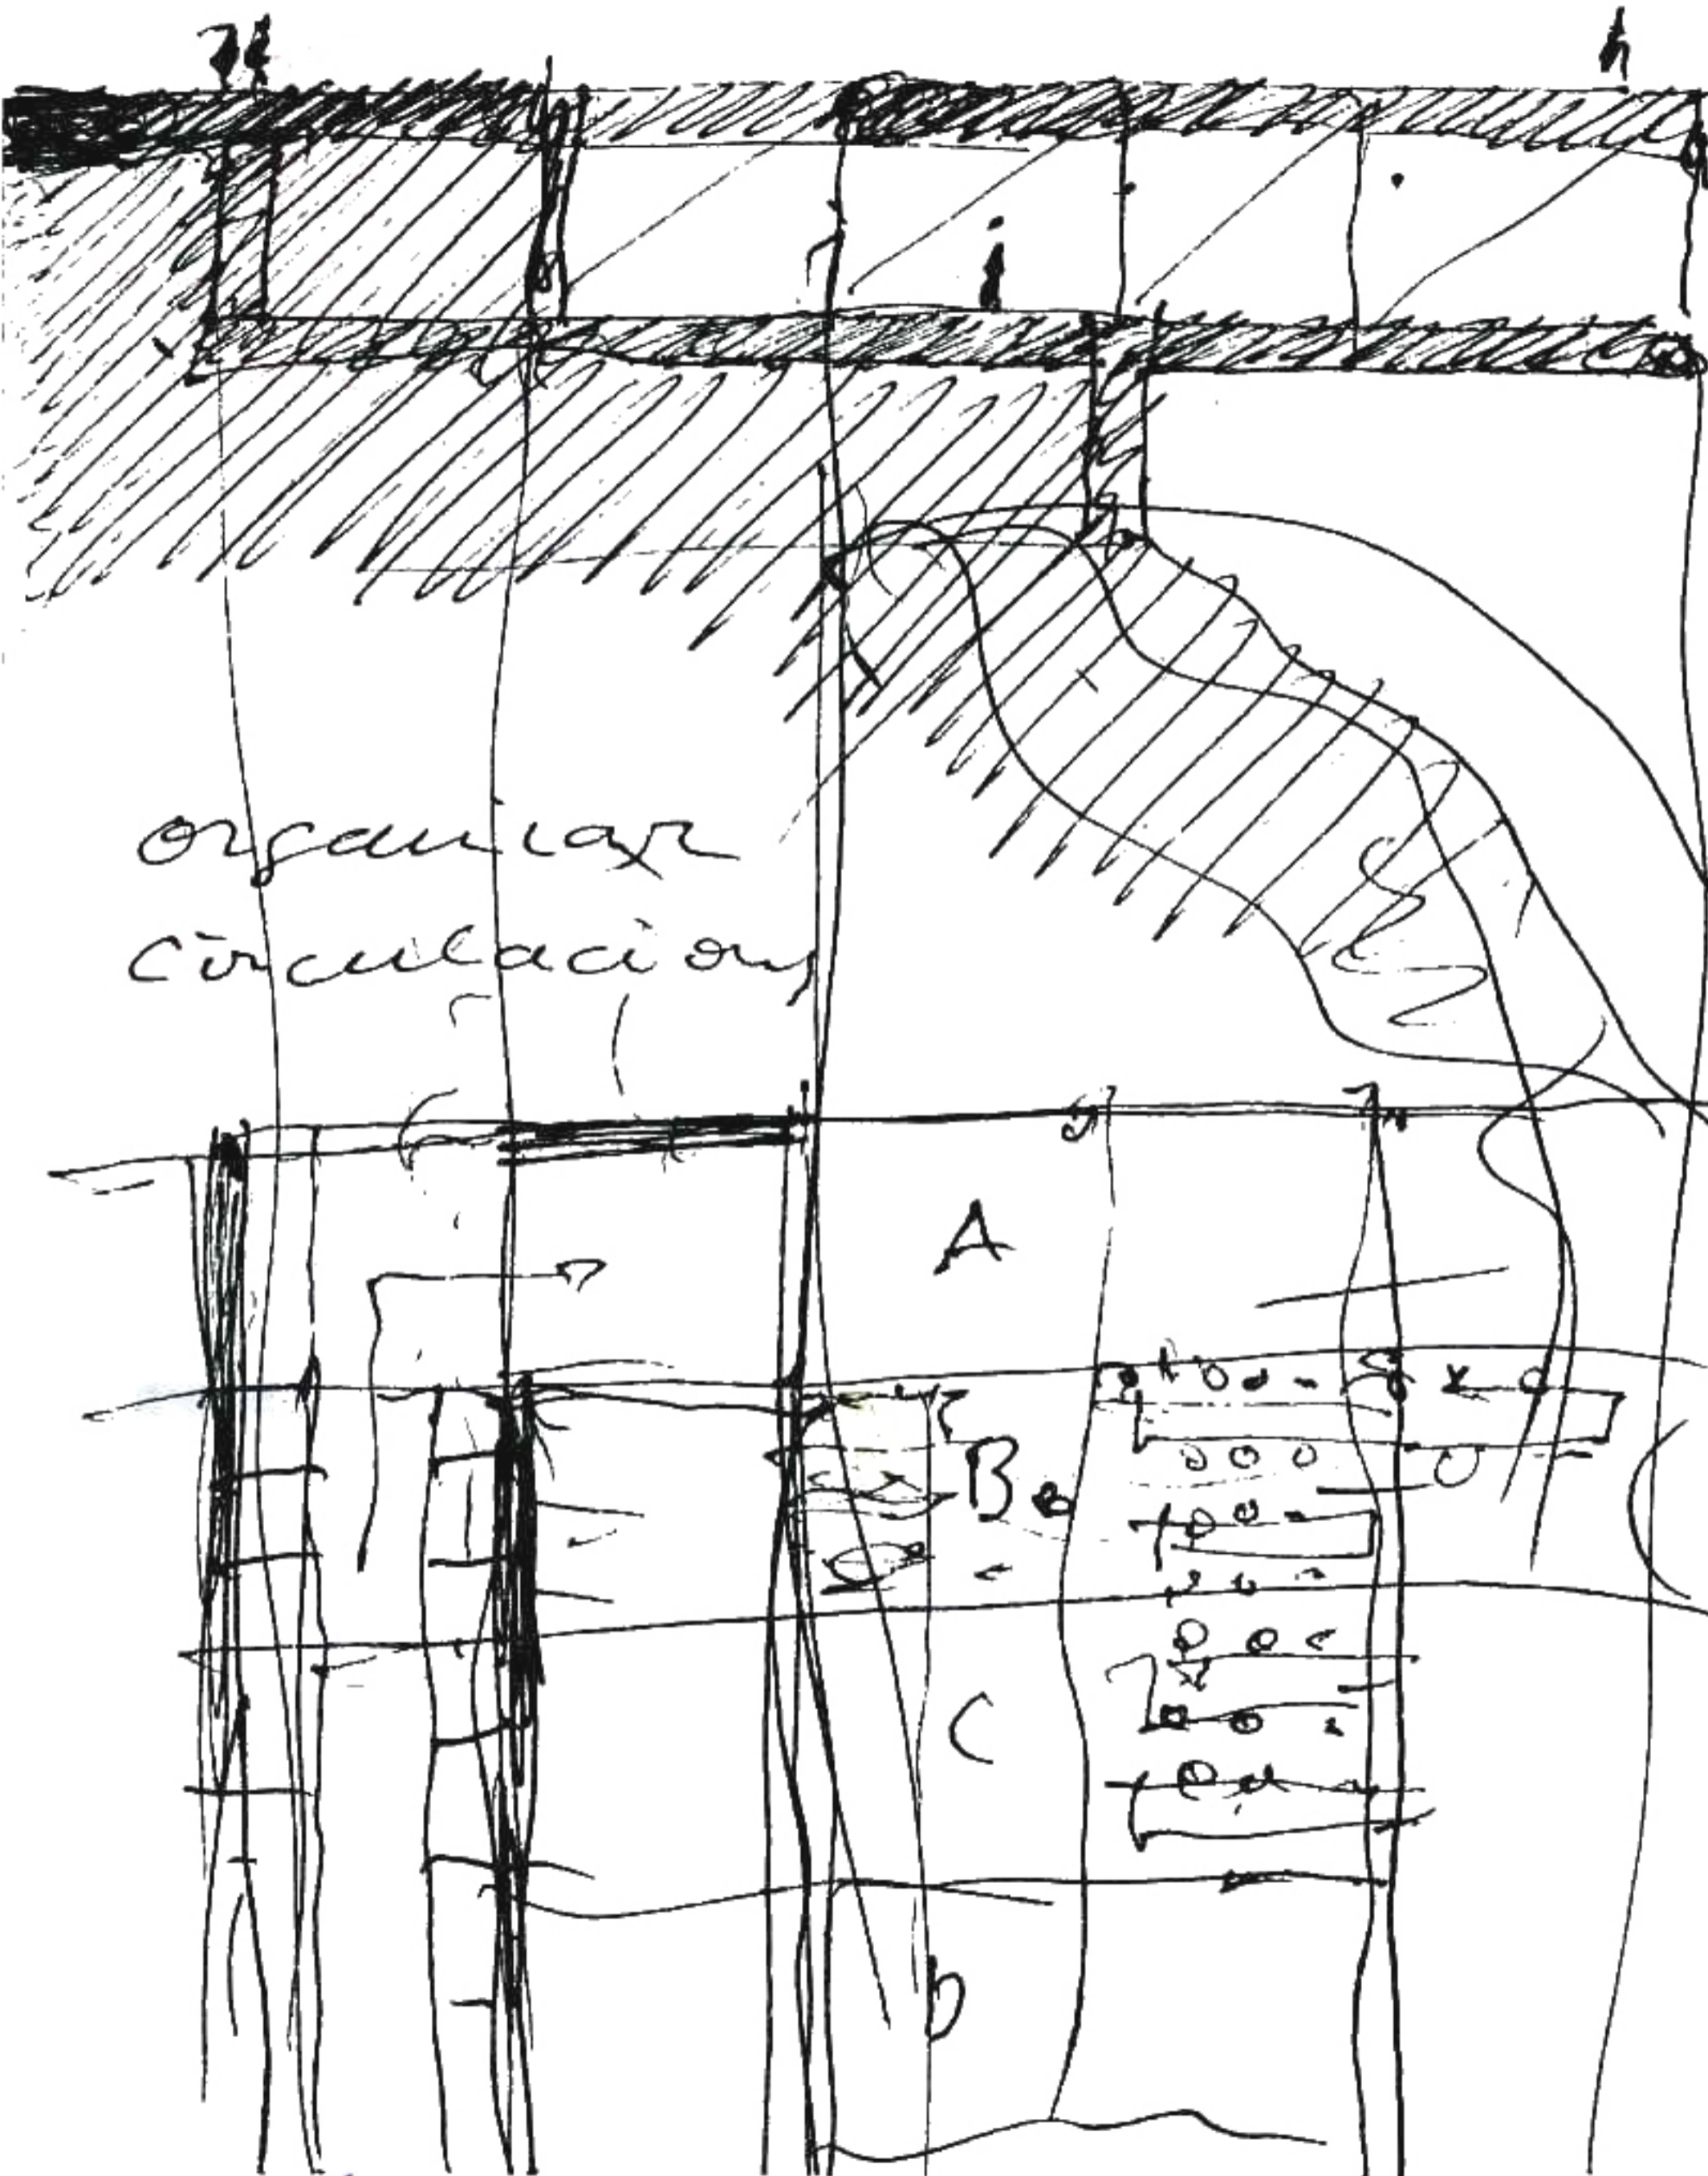 organizar
circulacion
A
B
C
D